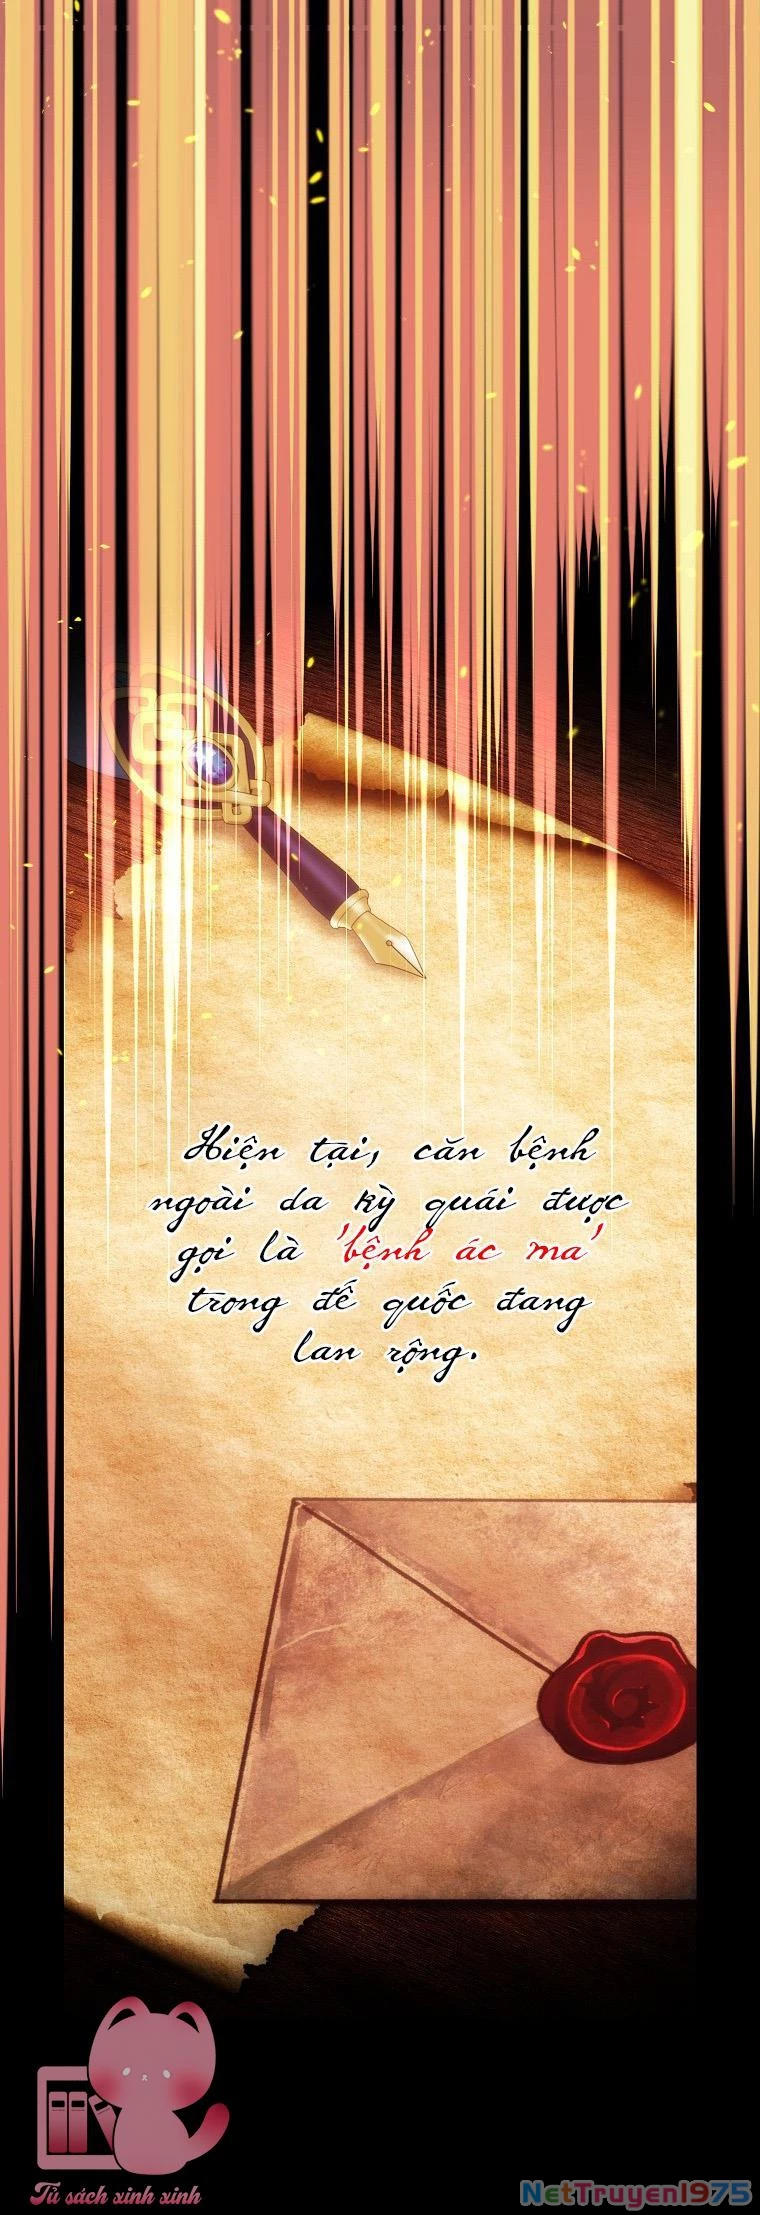 Hiện tại, căn bệnh
ngoài da kỳ quái được
gọi là 'bệnh ác ma'
trong đế quốc đang
lan rộng.
Tủ sách xinh xinh
NetTruyen1975